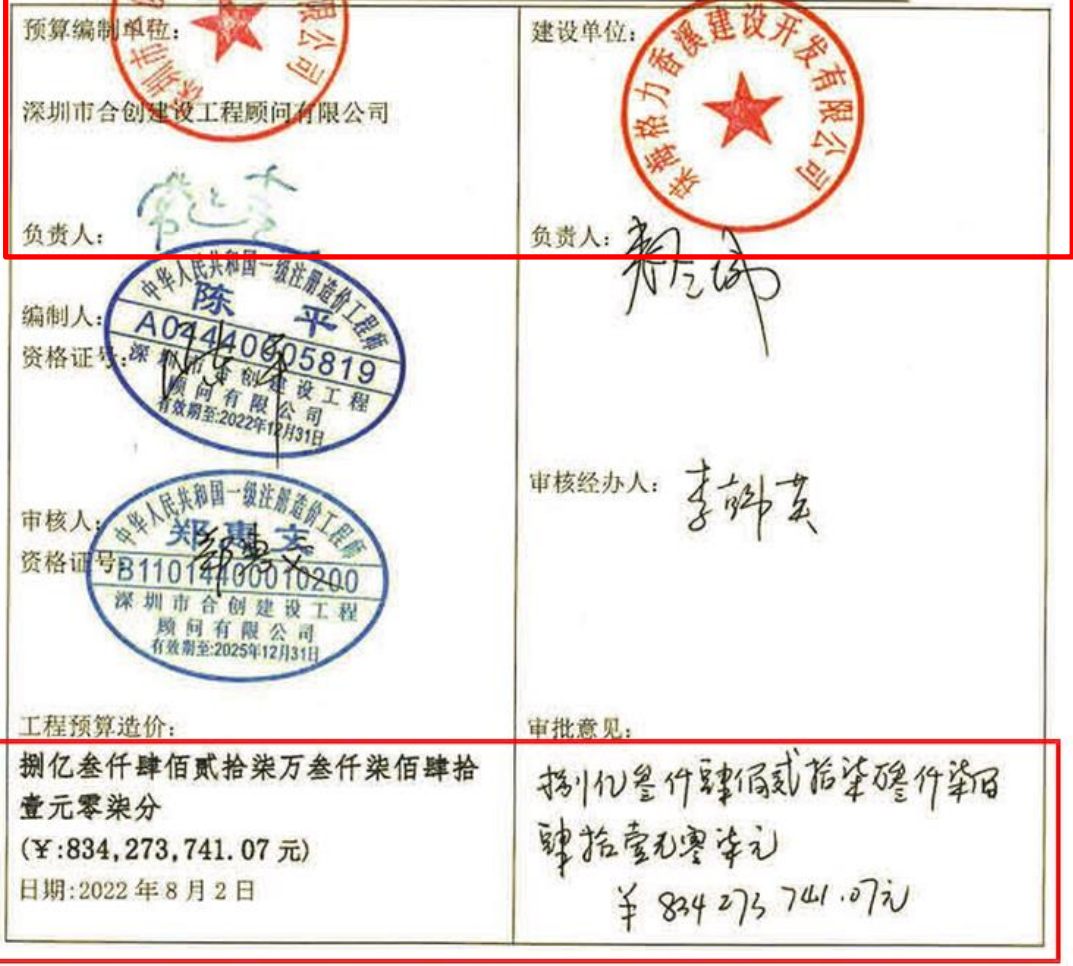 预算编制单位:
深圳市合创建设工程顾问有限公司
负责人:
中华人民共和国一级注册造价工程师
陈 平
编制人:
A04440005819
资格证号:
深圳市合创建设工程
顾问有限公司
有效期至:2022年12月31日
中华人民共和国一级注册造价工程师
审核人:
郑惠文
郑惠文
资格证号:
B11014400010200
深圳市合创建设工程
顾问有限公司
有效期至:2025年12月31日
工程预算造价:
捌亿叁仟肆佰贰拾柒万叁仟柒佰肆拾
壹元零柒分
(¥:834,273,741.07 元)
日期:2022 年 8 月 2 日
建设单位:
珠海格力香溪建设开发有限公司
负责人:
审核经办人:
审批意见:
捌亿叁仟肆佰贰拾柒万叁仟柒佰
肆拾壹元零柒元
¥ 834 273 741.07元